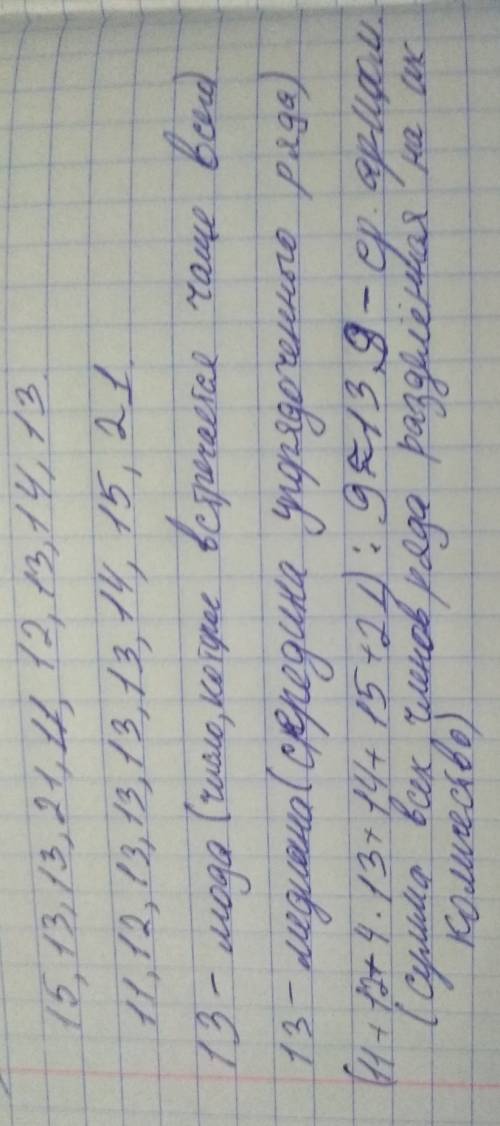 15, 13, 13, 21, 11, 12, 13, 14, 13.
11, 12, 13, 13, 13, 13, 14, 15, 21.
13 - мода (число, которые встречается чаще всего)
13 - медиана (середина упорядоченного ряда)
(11 + 12 + 4 · 13 + 14 + 15 + 21) : 9 ≈ 13,9 - ср. арифм.
(сумма всех членов ряда разделённая на их
количество)